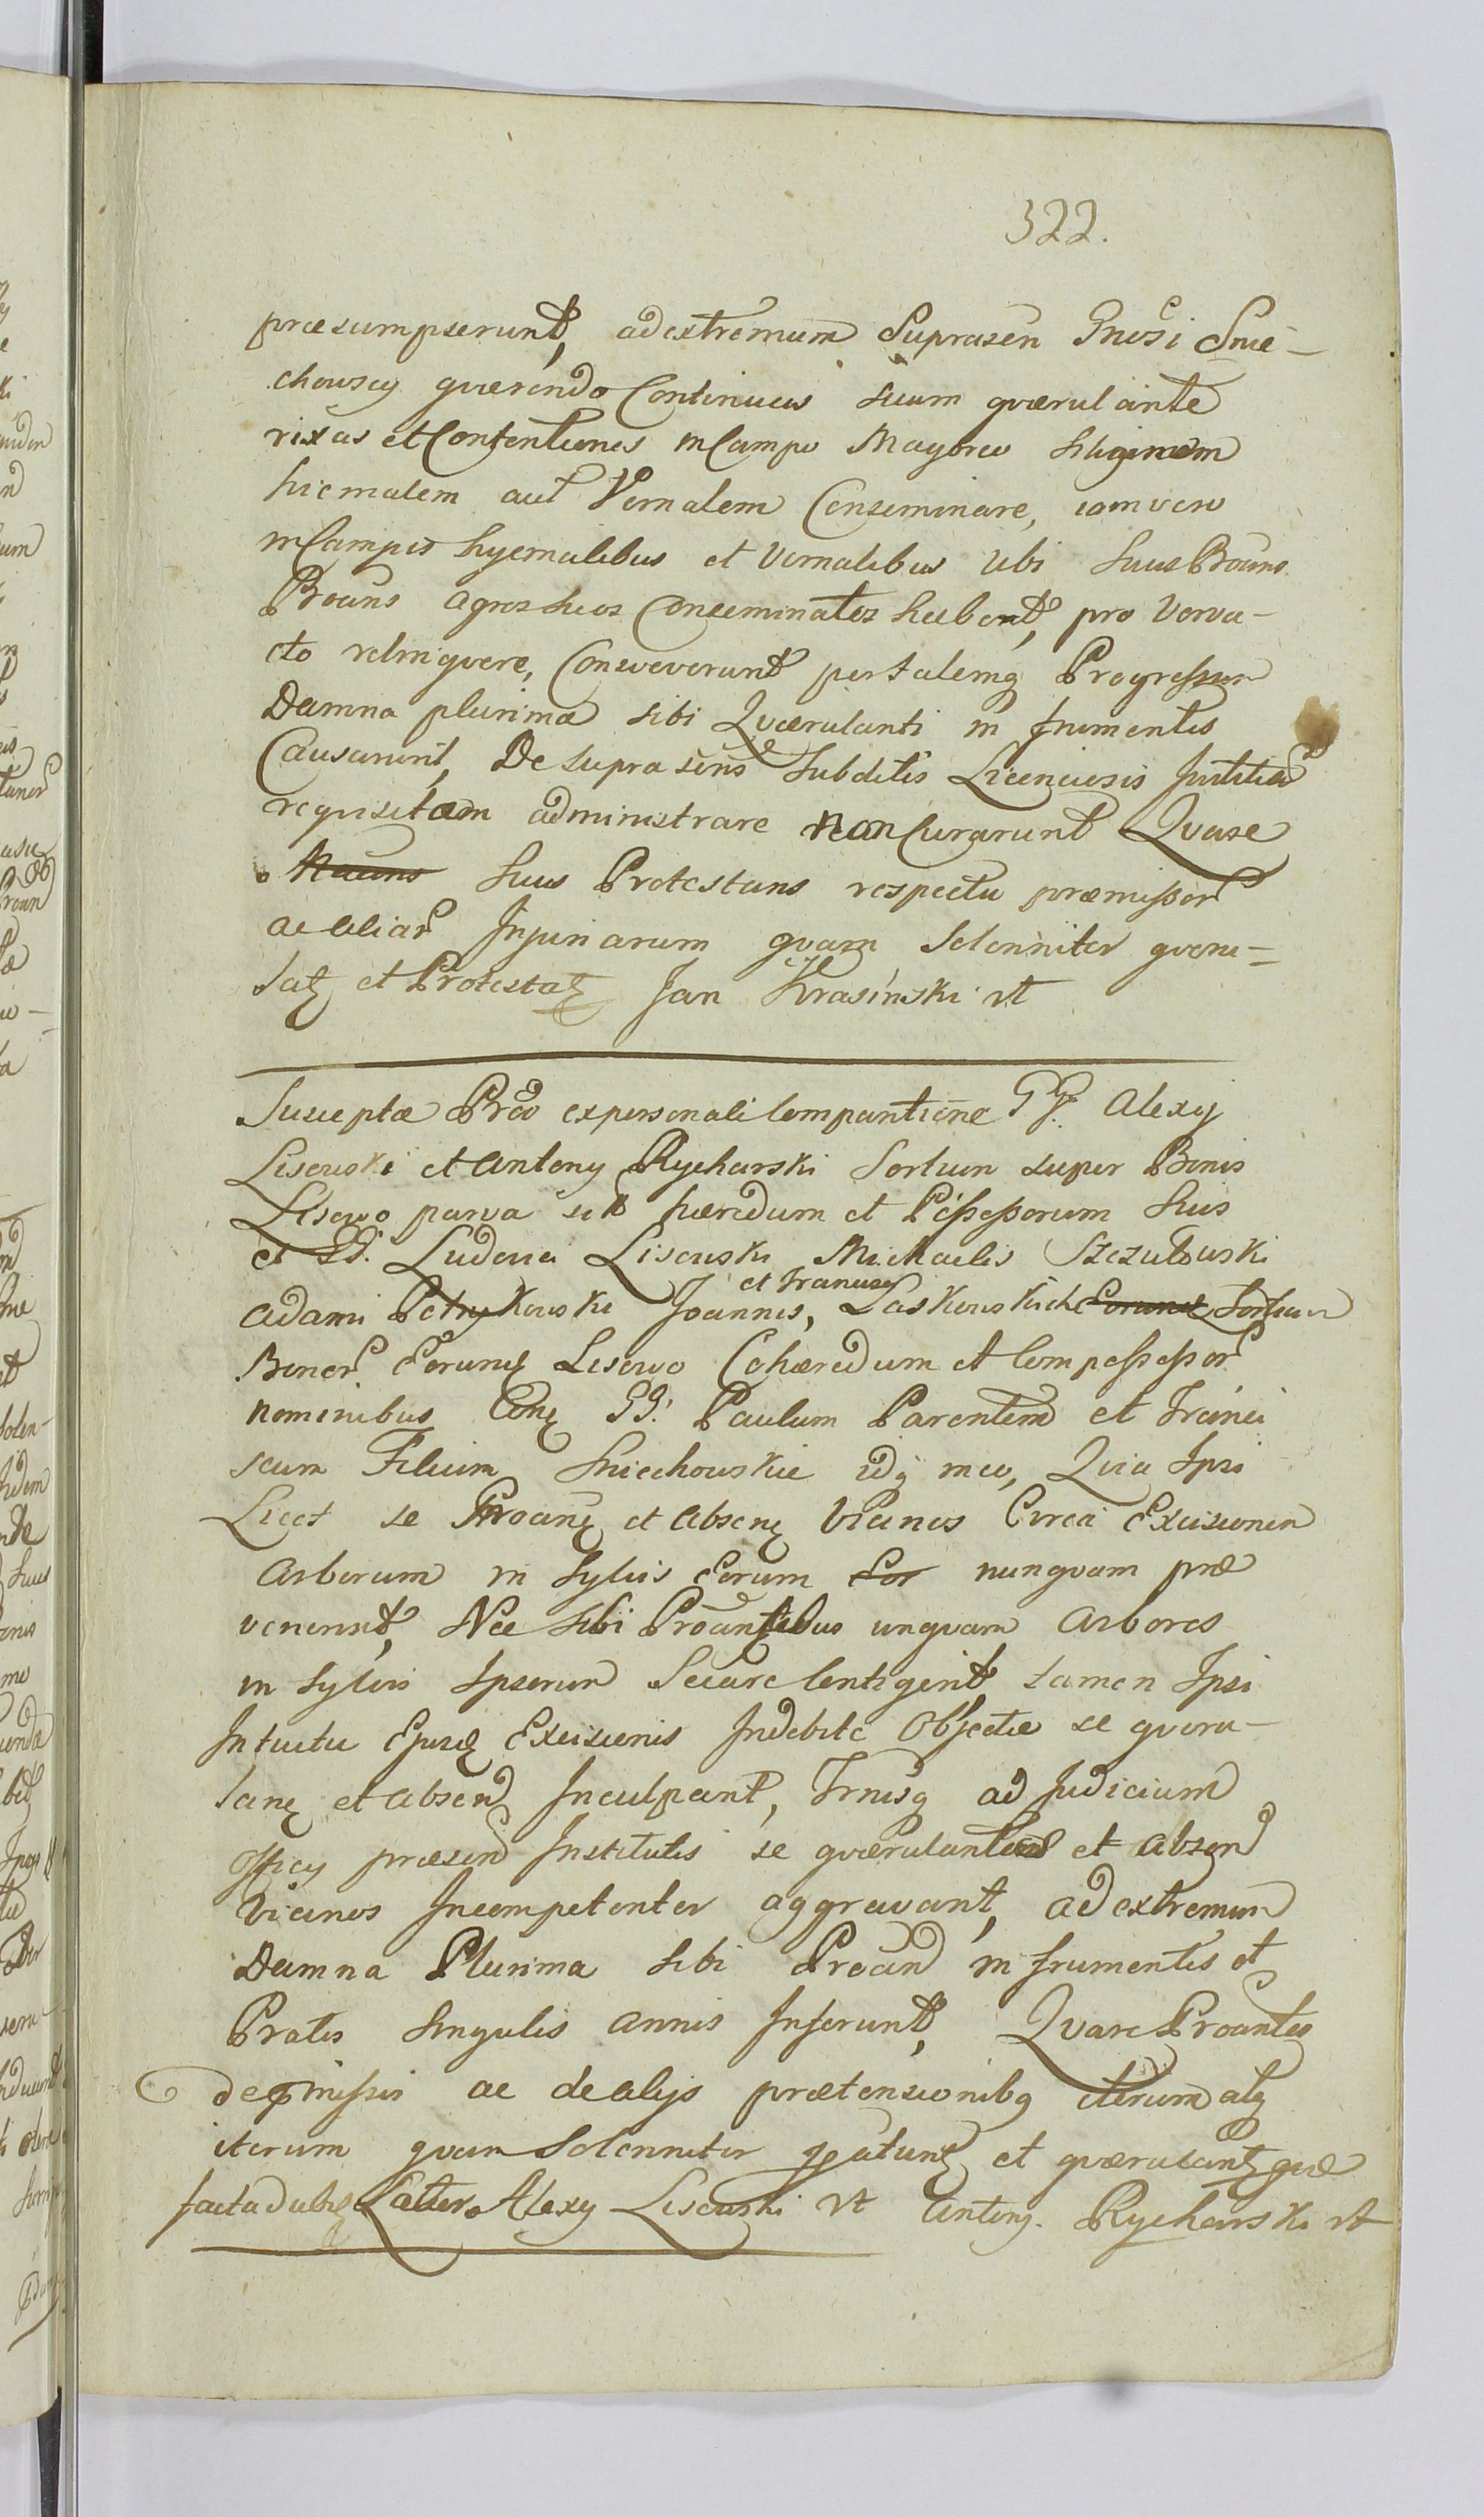 322.
præsumpserunt, ad extremum Suprasen Gnosi Snie-
chowscy quærendo Continuas suum quærulante
rixas et Contentiones in Campo Mayore siliginem
hiemalem aut Vernalem Conseminare, iam vero
in Campis hyemalibus et Vernalibus Ubi suus Proans
Proans agros suos Conseminatos habent, pro Verva-
cto relinquere, Consveverunt per talemq Progressum
Damna plurima sibi Quærulanti in frumentis
Causarunt, De suprasens Subditis Licenciosis Justitiam
requisitam administrare non Curarunt Quare
Suus Protestans respectu præmissor
ac aliar Injuriarum quam Solenniter queru-
latz et Protestatz Jan Krasinski vt
Suscepta Prao ex personali Comparitione GG. Alexy
Lisowski et Antony Rycharski Sortium super Bonis
Lisowo parva sit hæredum et Possessorum Suis
et GG. Ludovici Lisowski Michaelis Szczutowski
et Francisci
Adami Petrykowski Joannis, Laskowskich Sortium
Bonor Eorund Lisowo Cohæredum et Compossessor
nominibus Cong GG. Paulum Parentem et Franci
scum Filium Sniechowskie idq meo, Quia Ipsi
Licet se Proang et Abseng Vicinos Circa Excisionem
Arborum in Sylvis Eorum Eor nunquam præ
venerunt, Nec sibi Proantibus unquam Arbores
in Sylvis Ipsorum Secare Contigerit, tamen Ipsi
Intuitu Ejusd Excisionis Indebite Objectæ se queru-
lang et Absend Inculpant, Trnisq ad Judicium
Officy præsend Institutis se quærulantes et Absend
Vicinos Incompetenter aggravant, ad extremum
Damna Plurima sibi Proand in frumentis et
Pratis Singulis Annis Inferunt, Quare Proantes
de præmissis ac de alijs prætensionibq iterum atq
iterum quam Solenniter et quærulantz
Alexy Lisowski vt Antony Rycharski vt